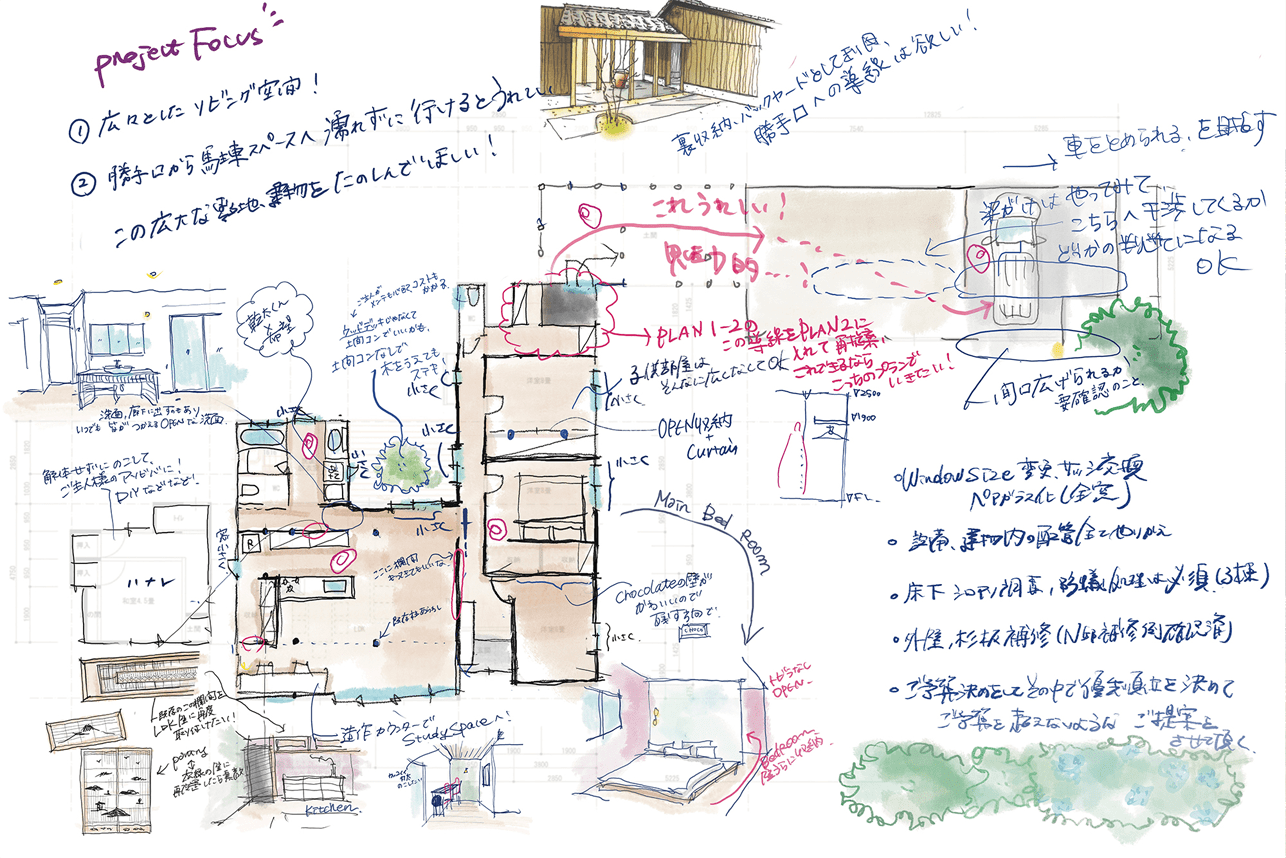 project Focus
① 広々としたリビング空間!
② 勝手口から馬棟スペースへ濡れずに行けるとうれしい
この広大な敷地、建物をたのしんでほしい!
裏収納、バックヤードとして利用、
勝手口への導線は欲しい!
車をとめられる、を目指す
梁がけはやってみて
こちらへ干渉してくるか
どうかの
になる
OK
これうれしい!
魅力的
PLAN 1-2の
この導線をPLAN2に
入れて再提案
これできるなら
こっちのプランで
いきたい!
間口広げられるか
要確認のこと、
乾太くん
メンテも心配、コストも
かかる
ウッドデッキじゃなくて
土間コンでいいかも、
土間コンなしで
木をうえても
ステキ!
小さく
小さく
小さく
小さく
小さく
小さく
小さく
小さく
子供部屋は
そんなに広くなくてOK
OPEN収納
+
Curtain
▽2500
▽1900
▽FL
Main Bed Room
洗面、廊下に出すのもあり
いつでも皆がつかえるOPENな洗面
解体せずにのこして、
ご主人様のアソビバに!
DIYなどなど!
押入
押入
ハナレ
窓小さく
R
ここに欄間
既存柱あらわし
Chocolateの壁が
かわいいので
CHOCO
既存のこの欄間を
LDK・壁に再度
取り付けしたい!
造作カウンターで
Study Spaceへ!
Kitchen
トビラなし
OPEN
Bedroom
壁うらに収納
・Window Size 変更、サッシ交換
ペアガラスイレ(全室)
・設備、建物内の配管全てやりかえ
・床下シロアリ調査、防蟻処理は必須(3棟)
・外壁、杉板補修(N邸補修例確認済)
・ご予算決めをしてその中で優先順位を決めて
ご予算を超えないような ご提案を
させて頂く